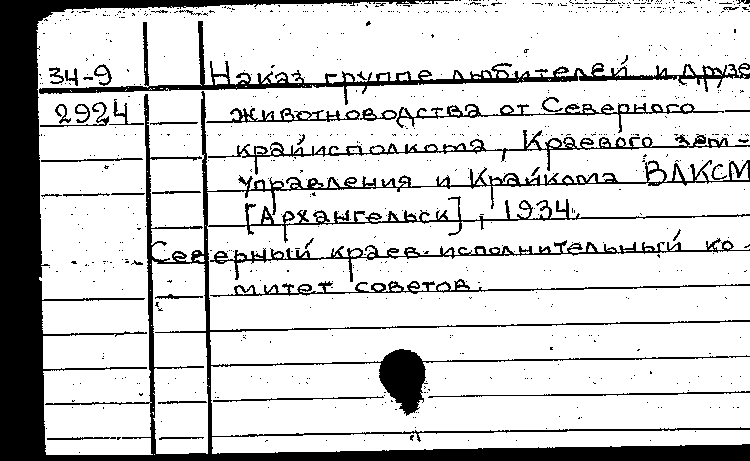 34-9 Наказ группе любителей и друзе
2924 животноводства от Северного
крайисполкома, Краевого зем-
управления и Крайкома ВЛКСМ
[Архангельск], 1934.
Северный краев. исполнительный ко-
митет советов.